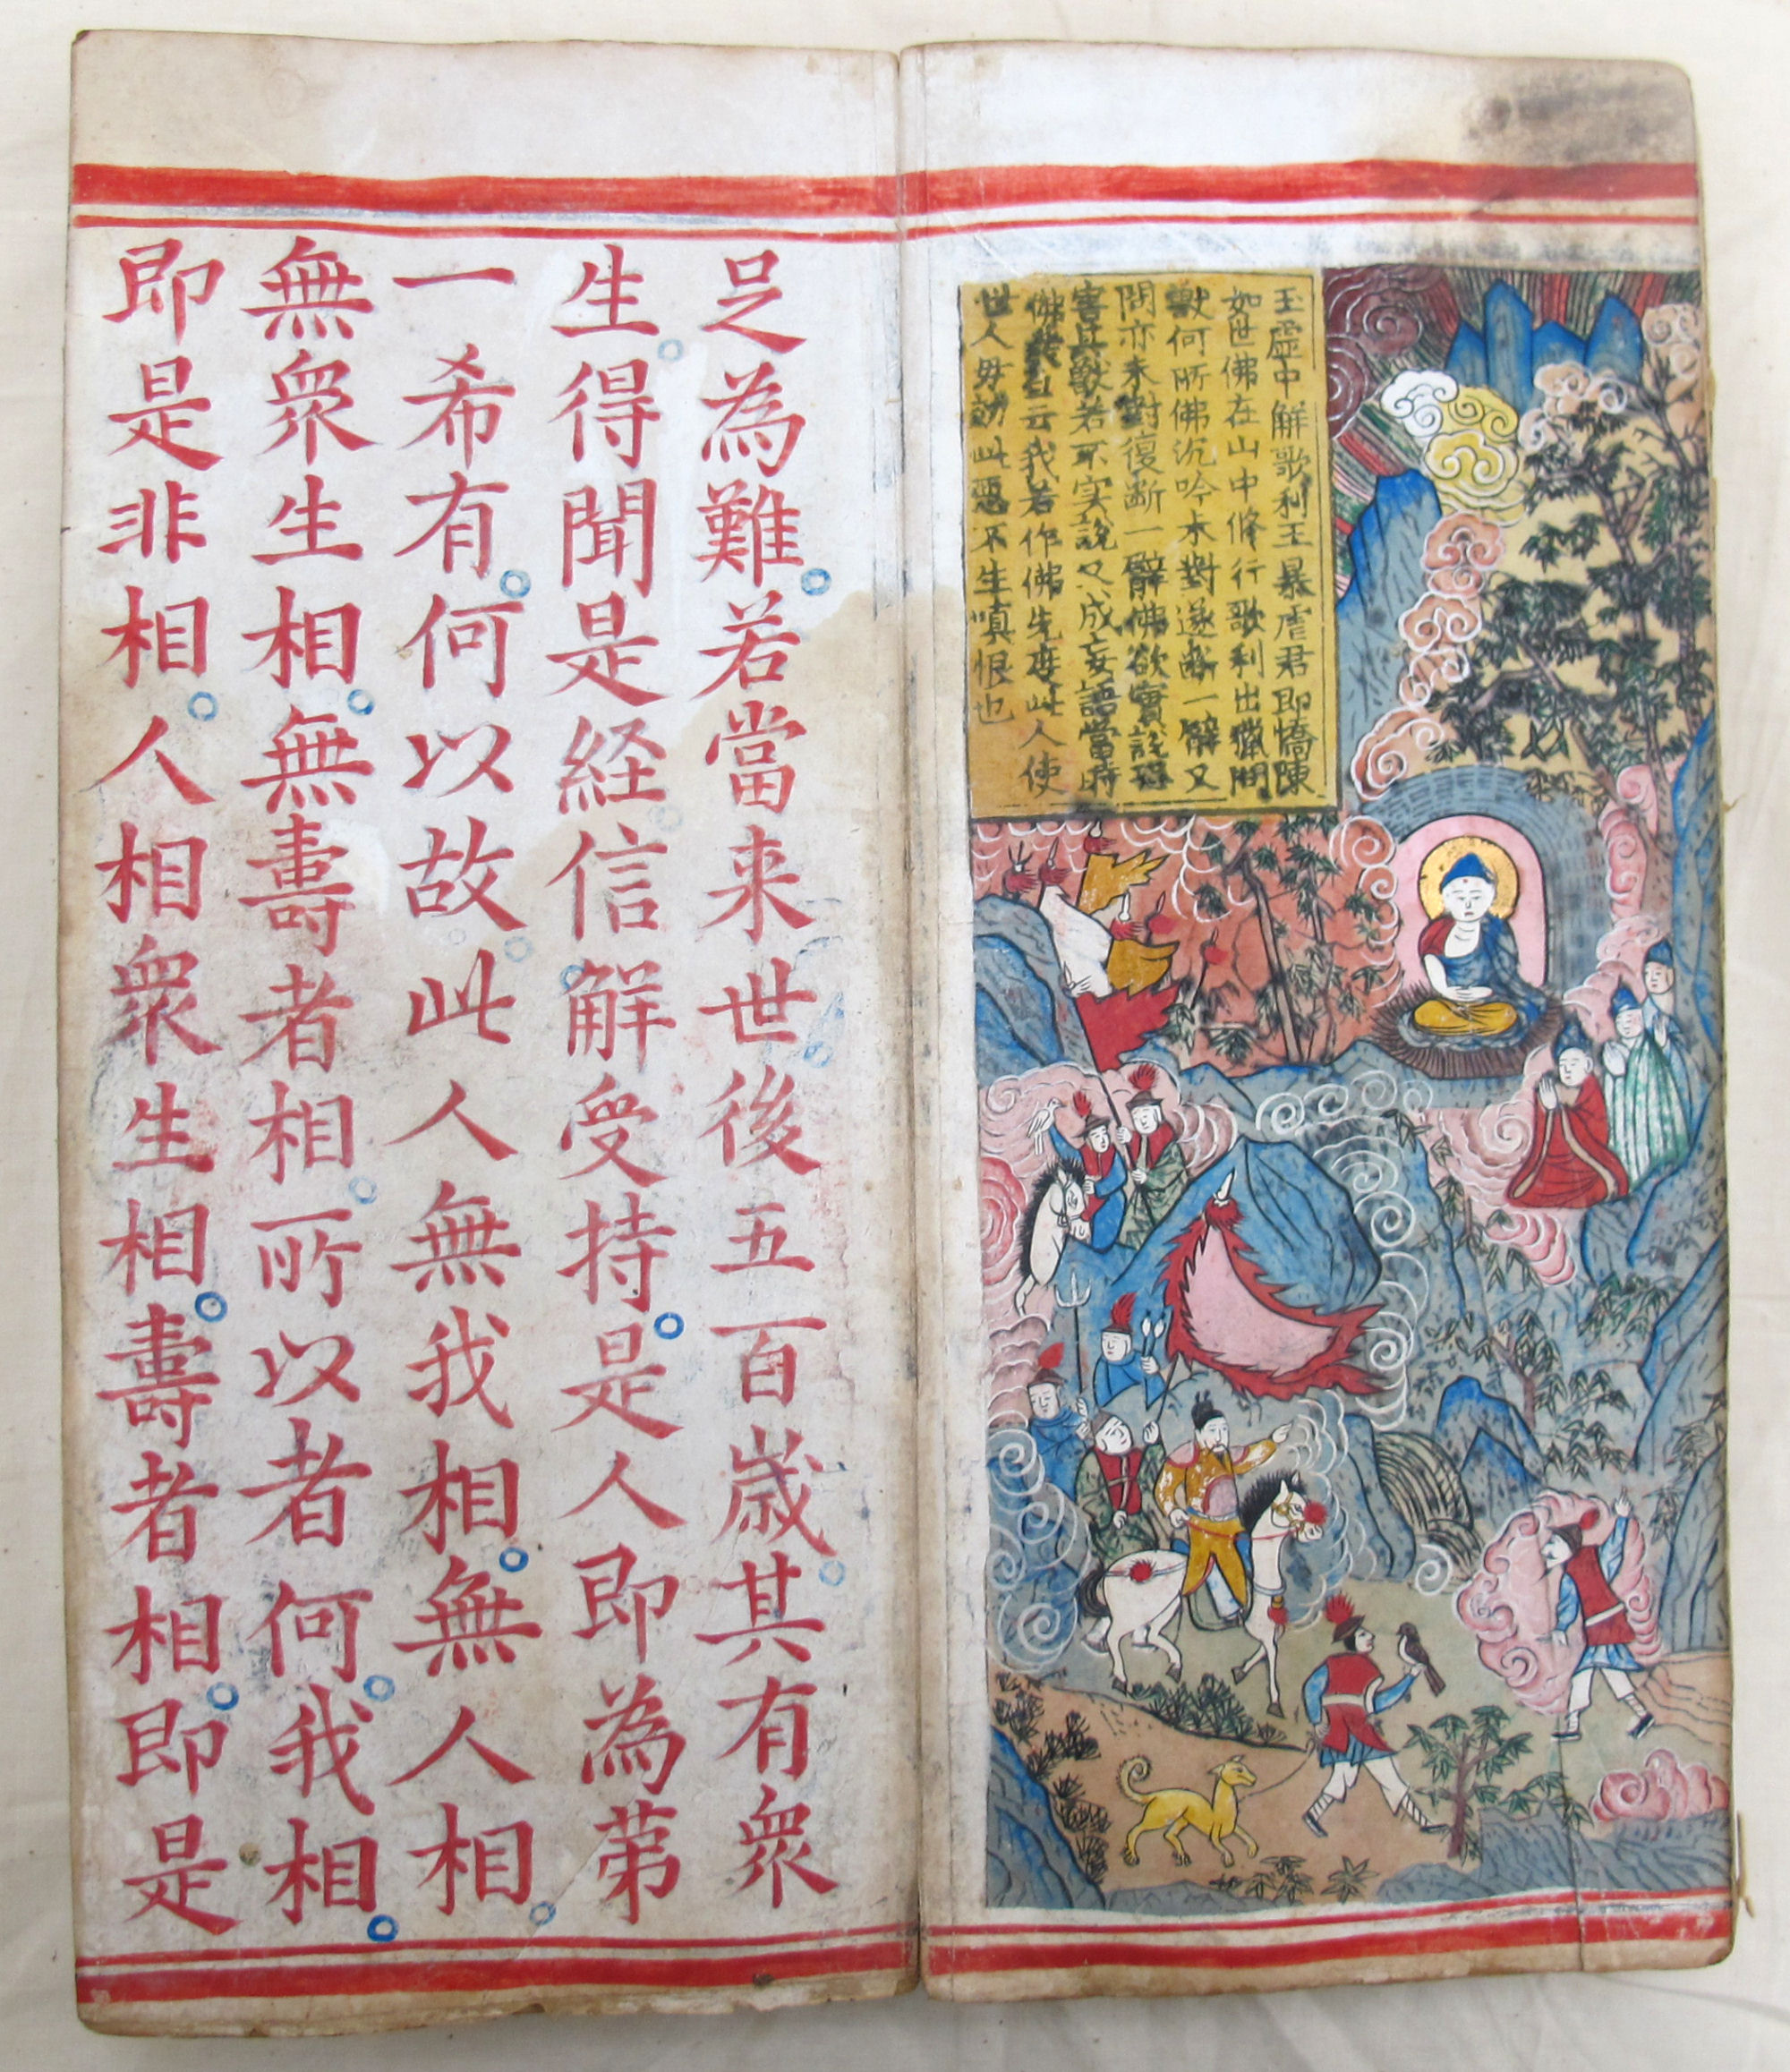 玉虚中解歌利王暴虐君即憍陳
如世佛在山中修行歌利出獵問
獸何所佛沉吟未對遂斷一臂又
問亦未對復斷一臂佛欲實說恐
害其獸若不实說又成妄語當時
佛發云我若作佛先度此人使
世人毋効此惡不生嗔恨也
足為難。若當来世。後五百歳。其有衆
生。得聞是経。信解受持。是人即為苐
一希有。何以故。此人無我相。無人相。
無衆生相。無壽者相。所以者何。我相。
即是非相。人相衆生相。壽者相。即是